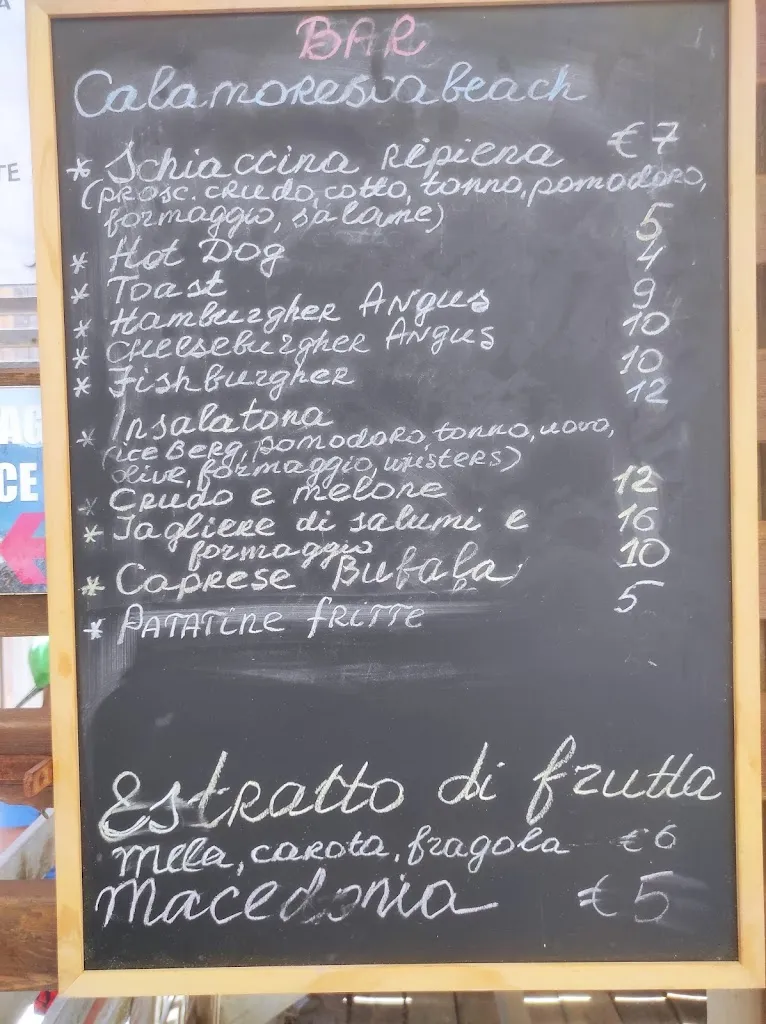 BAR
Calamoresca beach
* Schiaccina Ripiena €7
(prosc. crudo, cotto, tonno, pomodoro,
formaggio, salame)
* Hot Dog 5
* Toast 4
* Hamburgher Angus 9
* Cheeseburgher Angus 10
* Fishburgher 10
* Insalatona 12
(ice Berg, pomodoro, tonno, uovo,
olive, formaggio, wusters)
* Crudo e melone 12
* Tagliere di salumi e 16
formaggio
* Caprese Bufala 10
* Patatine fritte 5
Estratto di frutta
mela, carota, fragola €6
Macedonia €5
TE
AG
CE